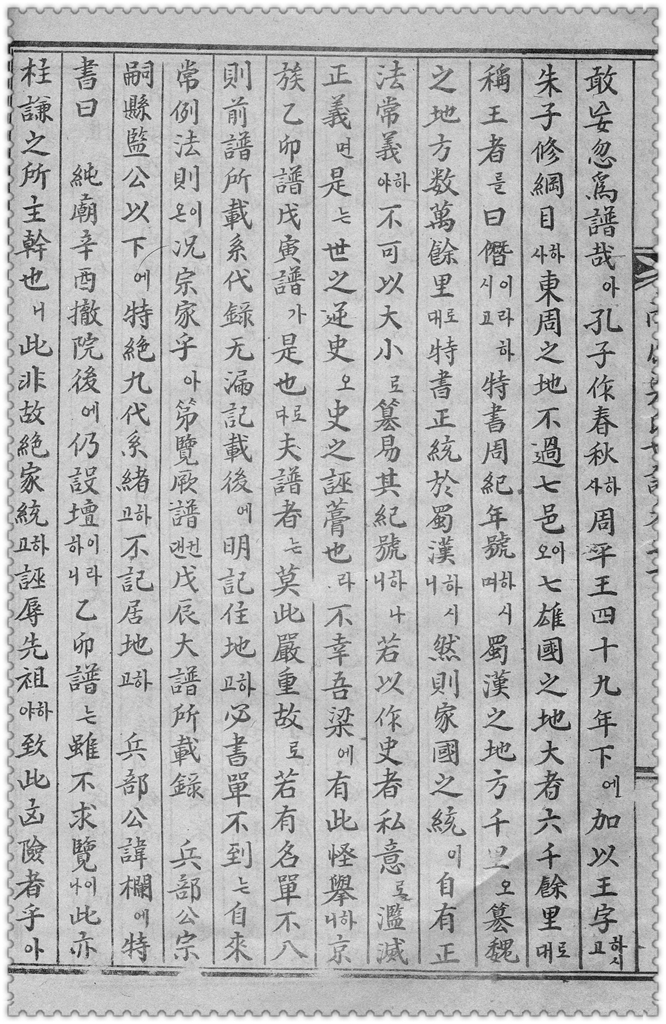 敢妄忽爲譜哉아孔子作春秋하사周平王四十九年下에加以王字하시고
朱子修綱目하사東周之地不過七邑이오七雄國之地大者六千餘里로대
稱王者를曰僭이라하시고特書周紀年號하시며蜀漢之地方千里오簒魏
之地方数萬餘里로대特書正統於蜀漢하시니然則家國之統이自有正
法常義하야不可以大小로簒易其紀號하나니若以作史者私意로濫滅
正義면是는世之逆史오史之誣蕢也라不幸吾梁에有此怪擧하니京
族乙卯譜戊寅譜가是也로다夫譜者는莫此嚴重故로若有名單不入
則前譜所載系代錄无漏記載後에明記住地하고必書單不到는自來
常例法則이온况宗家乎아第覽厥譜건대戊辰大譜所載錄 兵部公宗
嗣縣監公以下에特絶九代系緖하고不記居地하고 兵部公諱欄에特
書曰 純廟辛酉撤院後에仍設壇이라하니乙卯譜는雖不求覽이나此亦
柱謙之所主幹也니此非故絶家統하고誣辱先祖하야致此凶險者乎아